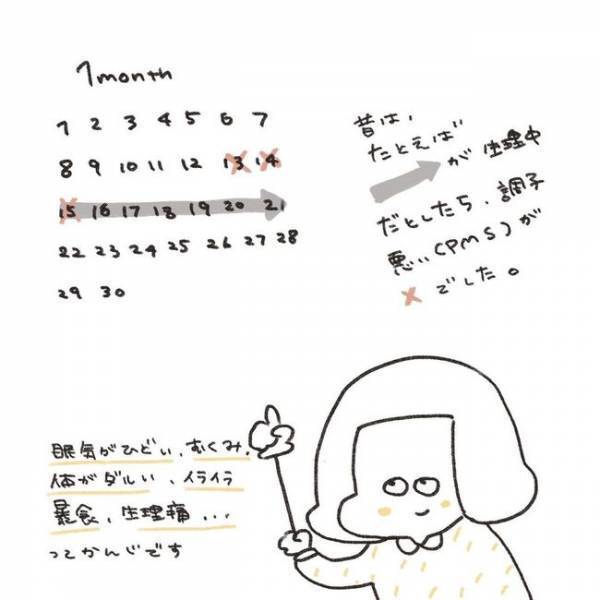 1 month
1 2 3 4 5 6 7
8 9 10 11 12 13 14
15 16 17 18 19 20 21
22 23 24 25 26 27 28
29 30
昔は、
たとえば
が生理中
だとしたら、調子
悪い(PMS)が
でした。
眠気がひどい、むくみ、
体がダルい、イライラ
暴食、生理痛...
ってかんじです